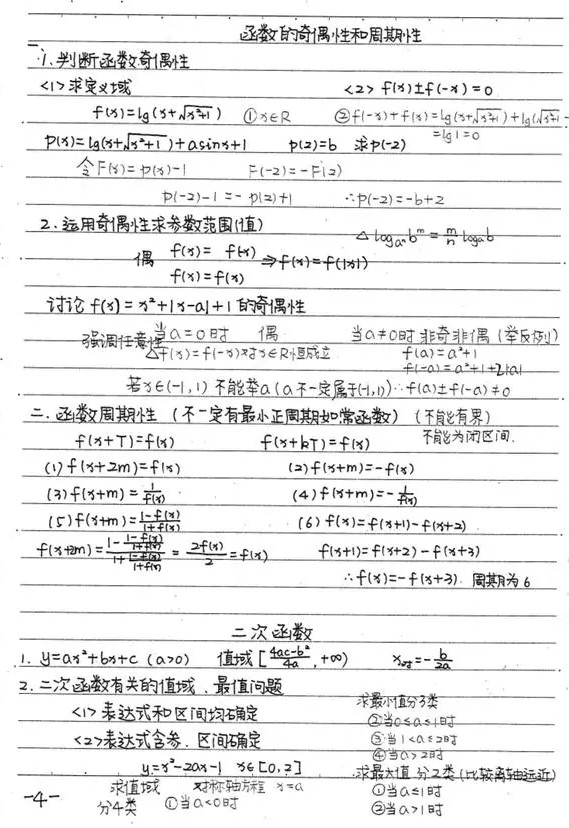 函数的奇偶性和周期性
1.判断函数奇偶性
<1>求定义域 <2> f(x)±f(-x)=0
f(x)=lg(x+√x²+1) ①x∈R ②f(-x)+f(x)=lg(x+√x²+1)+lg(√x²+1-
=lg1=0
p(x)=lg(x+√x²+1)+asinx+1 p(2)=b 求p(-2)
令F(x)=p(x)-1 F(-2)=-F(2)
p(-2)-1=-p(2)+1 ∴p(-2)=-b+2
2.运用奇偶性求参数范围(值) △ logₐⁿbᵐ=m/n logₐb
偶 f(x)=f(-x) ⇒f(x)=f(|x|)
f(x)=f(x)
讨论 f(x)=x²+|x-a|+1 的奇偶性
强调任意性 当a=0时 偶 当a≠0时 非奇非偶(举反例)
△f(x)=f(-x)对x∈R恒成立 f(a)=a²+1
f(-a)=a²+1+2|a|
若x∈(-1,1) 不能举a(a不一定属于(-1,1))∴f(a)±f(-a)≠0
二.函数周期性(不一定有最小正周期如常函数)(不能有界)
f(x+T)=f(x) f(x+kT)=f(x) 不能为闭区间.
(1) f(x+2m)=f(x) (2) f(x+m)=-f(x)
(3) f(x+m)=1/f(x) (4) f(x+m)=-1/f(x)
(5) f(x+m)=1-f(x)/1+f(x) (6) f(x)=f(x+1)-f(x+2)
f(x+2m)=(1-1-f(x)/1+f(x))/(1+1-f(x)/1+f(x))=2f(x)/2=f(x) f(x+1)=f(x+2)-f(x+3)
∴f(x)=-f(x+3) 周期为6
二次函数
1. y=ax²+bx+c (a>0) 值域[4ac-b²/4a,+∞) x对=-b/2a
2.二次函数有关的值域、最值问题
<1>表达式和区间均确定
<2>表达式含参、区间确定
y=x²-2ax-1 x∈[0,2]
求值域 对称轴方程 x=a
分4类 ①当a<0时
求最小值分3类
②当0≤a≤1时
③当1<a≤2时
④当a>2时
求最大值 分2类(比较离轴远近)
①当a≤1时
②当a>1时
-4-